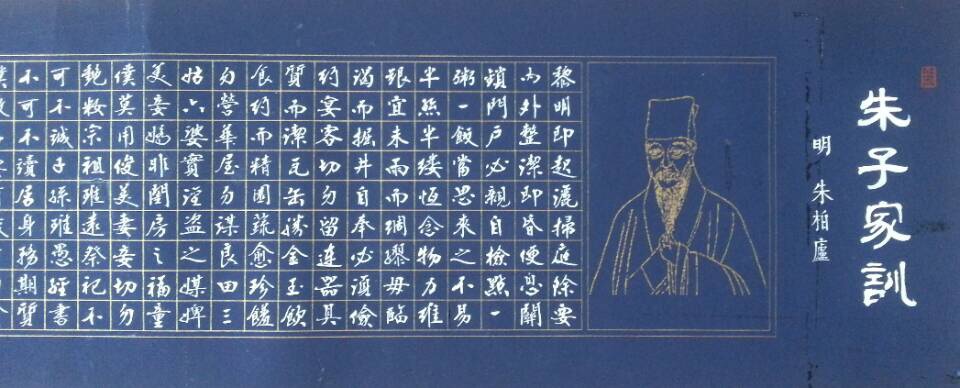 朱子家訓
明 朱柏廬
黎明即起灑掃庭除要
內外整潔即昏便息關
鎖門戶必親自檢點一
粥一飯當思來之不易
半絲半縷恆念物力維
艱宜未雨而綢繆毋臨
渴而掘井自奉必須儉
約宴客切勿留連器具
質而潔瓦缶勝金玉飲
食約而精園蔬愈珍饈
勿營華屋勿謀良田三
姑六婆實淫盜之媒婢
美妾嬌非閨房之福童
僕莫用俊美妻妾切勿
艷粧宗祖雖遠祭祀不
可不誠子孫雖愚經書
不可不讀居身務期質